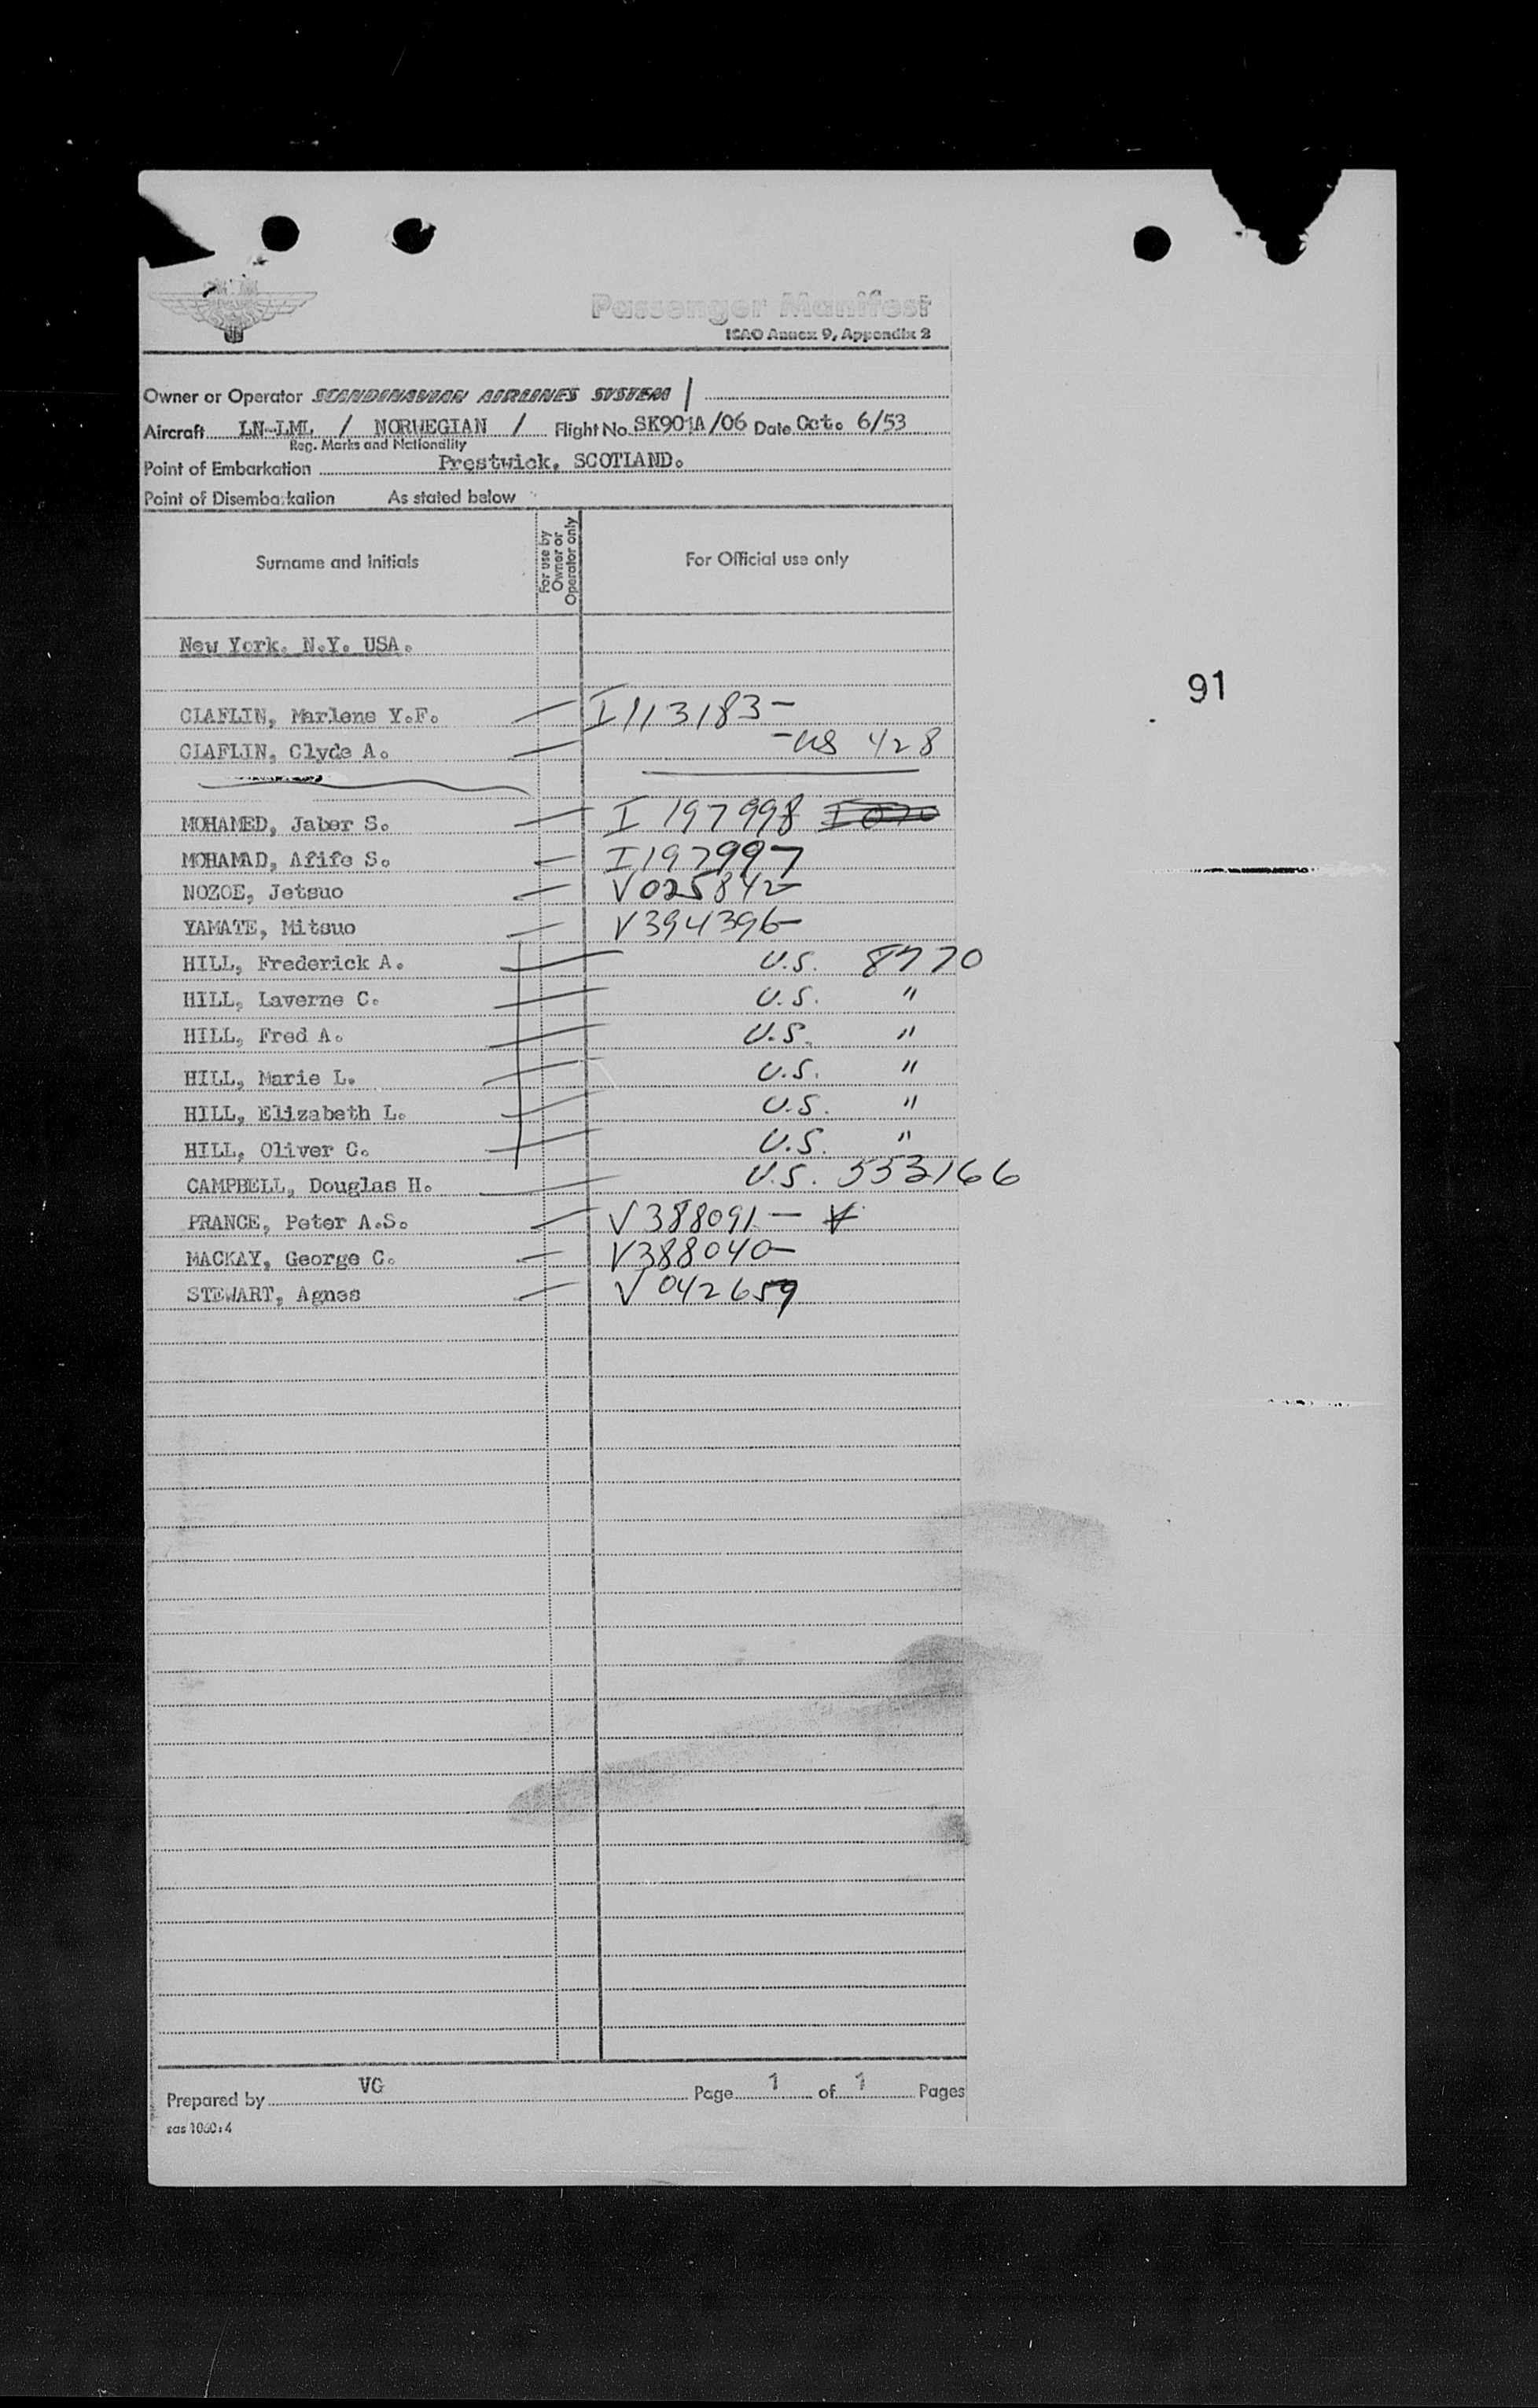 Passenger Manifest
ICAO Annex 9, Appendix 2
Owner or Operator SCANDINAVIAN AIRLINES SYSTEM
Aircraft LN-LML / NORWEGIAN / Flight No SK901A/06 Date Oct. 6/53
Reg. Marks and Nationality
Point of Embarkation Prestwick, SCOTLAND.
Point of Disembarkation As stated below
Surname and Initials For use by Owner or Operator only For Official use only
New York. N.Y. USA.
91
CLAFLIN, Marlene Y.F. I 113183 -
CLAFLIN, Clyde A. - US 428
MOHAMED, Jaber S. I 197998
MOHAMAD, Afife S. I 197997
NOZOE, Jetsuo V 025842
YAMATE, Mitsuo V 394396-
HILL, Frederick A. U.S. 8770
HILL, Laverne C. U.S. "
HILL, Fred A. U.S. "
HILL, Marie L. U.S. "
HILL, Elizabeth L. U.S. "
HILL, Oliver C. U.S. "
CAMPBELL, Douglas H. U.S. 553166
PRANCE, Peter A.S. V 388091 - V
MACKAY, George C. V 388040-
STEWART, Agnes V 042659
Prepared by VG Page 1 of 1 Pages
sas 1060:4